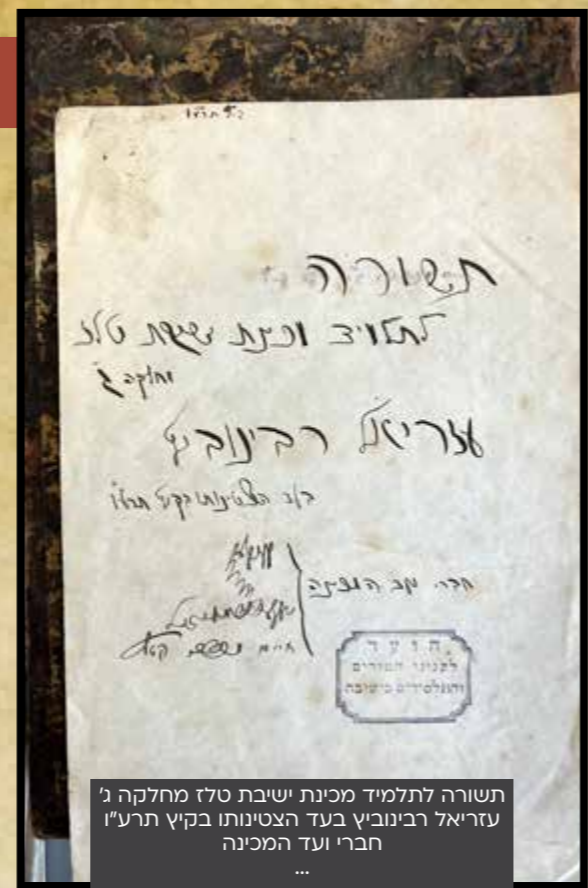 תשורה
לתלמיד מכינת ישיבת טלז
מחלקה ג'
עזריאל רבינוביץ
בעד הצטינותו בקיץ תרע"ו
חברי ועד המכינה
הועד
לעניני המורים
והתלמידים בישיבה
תשורה לתלמיד מכינת ישיבת טלז מחלקה ג'
עזריאל רבינוביץ בעד הצטינותו בקיץ תרע"ו
חברי ועד המכינה
...